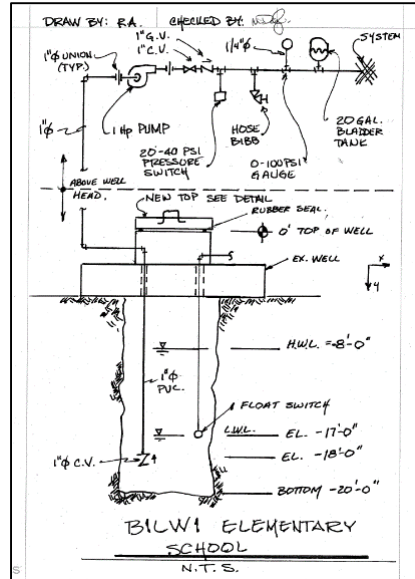 DRAW BY: R.A. CHECKED BY:
1"Ø UNION
(TYP.)
1" G.V.
1" C.V.
1/4"Ø
SYSTEM
1"Ø
1 Hp PUMP
20-40 PSI
PRESSURE
SWITCH
HOSE
BIBB
0-100 PSI
GAUGE
20 GAL.
BLADDER
TANK
ABOVE WELL
HEAD.
NEW TOP SEE DETAIL
RUBBER SEAL.
0' TOP OF WELL
EX. WELL
X
Y
H.W.L. = -8'-0"
1"Ø
PVC.
FLOAT SWITCH
L.W.L. EL. -17'-0"
1"Ø C.V.
EL. -18'-0"
BOTTOM -20'-0"
BILWI ELEMENTARY
SCHOOL
N.T.S.
S